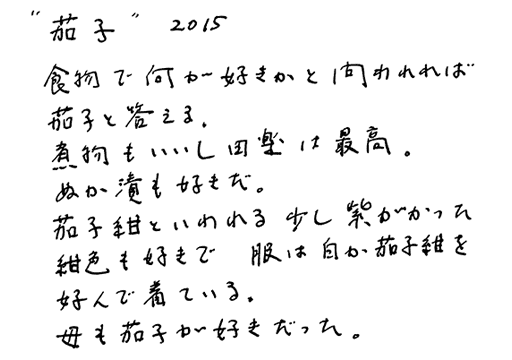 "茄子" 2015
食物で何が好きかと問われれば
茄子と答える。
煮物もいいし田楽は最高。
ぬか漬も好きだ。
茄子紺といわれる少し紫がかった
紺色も好きで 服は白か茄子紺を
好んで着ている。
母も茄子が好きだった。